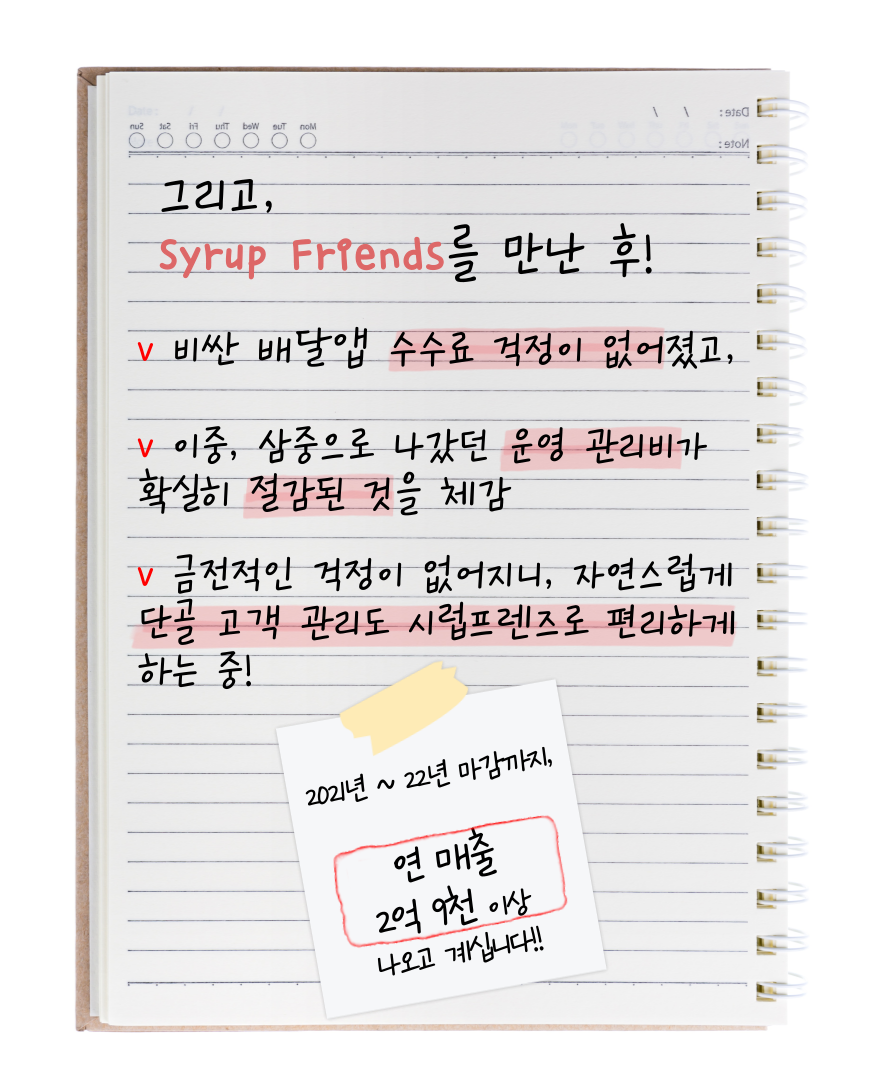 Date: / /
Mon Tue Wed Thu Fri Sat Sun
Note:
그리고,
Syrup Friends를 만난 후!
v 비싼 배달앱 수수료 걱정이 없어졌고,
v 이중, 삼중으로 나갔던 운영 관리비가
확실히 절감된 것을 체감
v 금전적인 걱정이 없어지니, 자연스럽게
단골 고객 관리도 시럽프렌즈로 편리하게
하는 중!
2021년 ~ 22년 마감까지,
연 매출
2억 9천 이상
나오고 계십니다!!